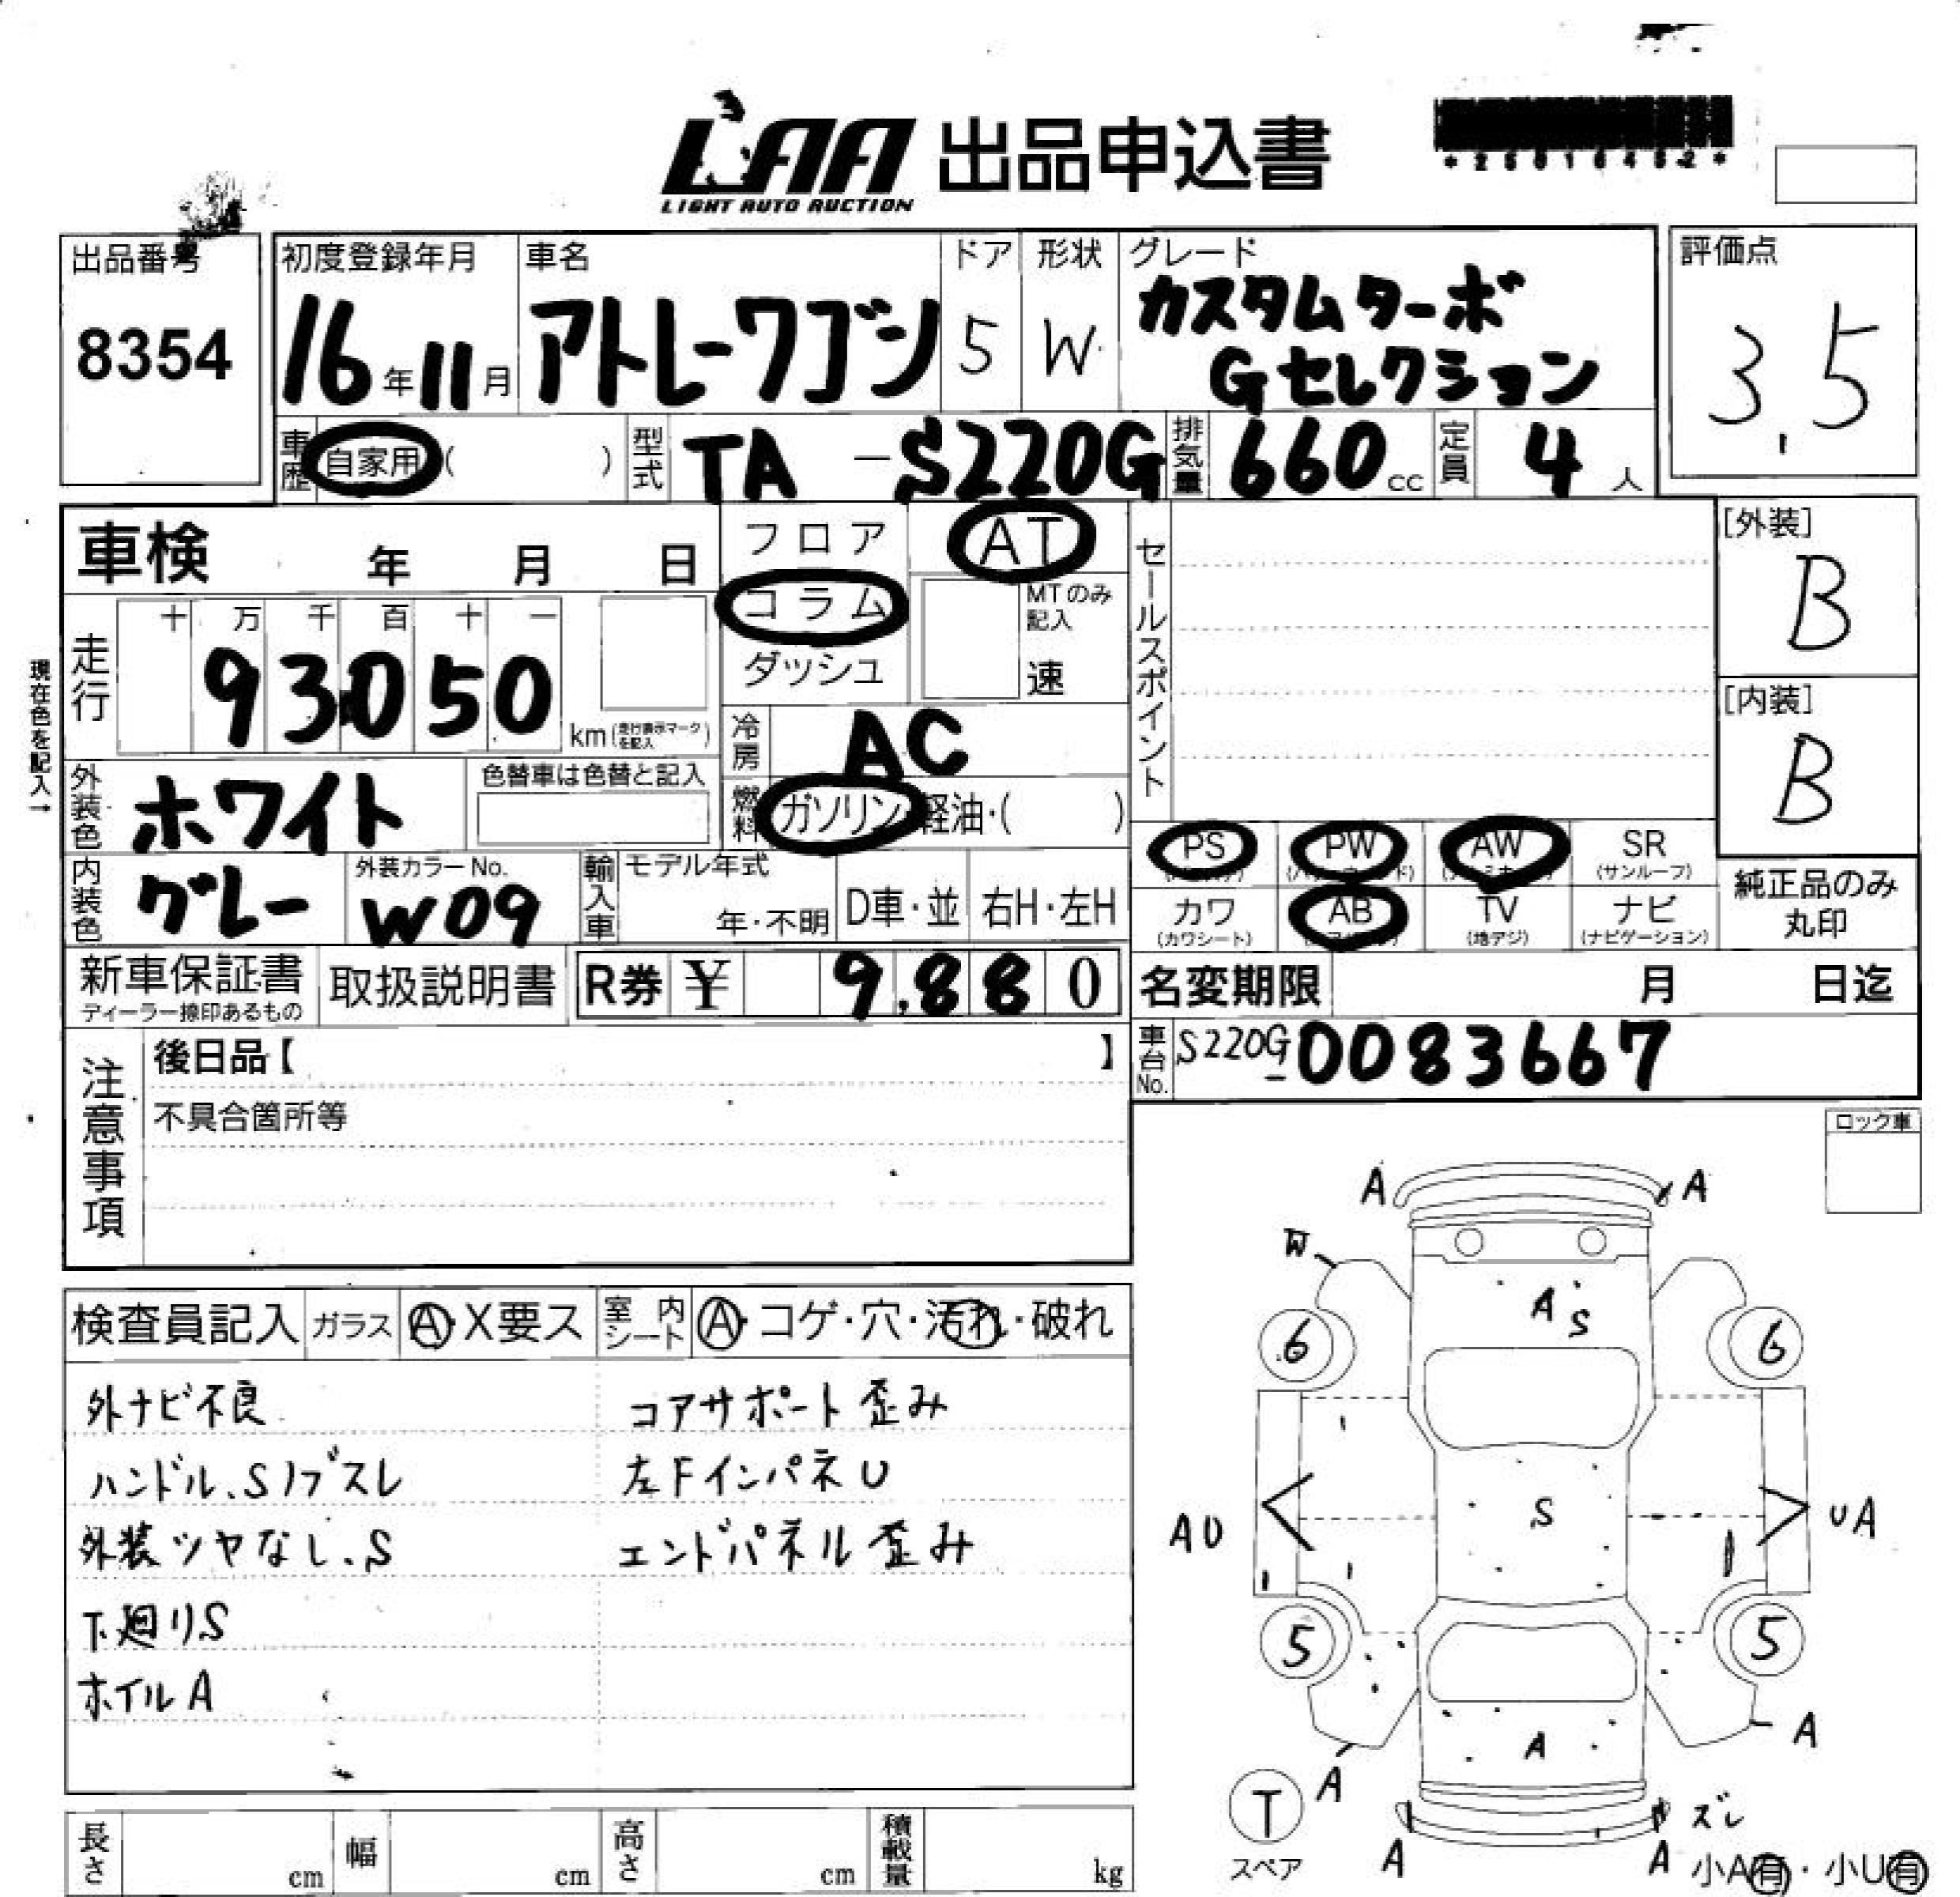 LAA 出品申込書
LIGHT AUTO AUCTION
出品番号
8354
初度登録年月
16年11月
車名
アトレーワゴン
ドア
5
形状
W
グレード
カスタムターボ
Gセレクション
評価点
3.5
車歴 自家用 ( )
型式 TA - S220G
排気量 660 cc
定員 4 人
車検 年 月 日
フロア
コラム
ダッシュ
AT
MTのみ
記入
速
セールスポイント
[外装]
B
[内装]
B
現在色を記入→
走行
十 万 千 百 十 一
93050
km (走行表示マークを記入)
冷房 AC
燃料 ガソリン・軽油・( )
外装色 ホワイト
色替車は色替と記入
内装色 グレー
外装カラーNo.
W09
輸入車
モデル年式
年・不明
D車・並
右H・左H
PS PW AW SR
(サンルーフ)
カワ AB TV ナビ
(カワシート) (地デジ) (ナビゲーション)
純正品のみ
丸印
新車保証書
ディーラー捺印あるもの
取扱説明書
R券 ¥ 9,880
名変期限 月 日迄
車台No. S220G-0083667
注意事項
後日品【 】
不具合箇所等
ロック車
検査員記入
ガラス A・X要ス
室内シート A・コゲ・穴・汚れ・破れ
外ナビ不良
ハンドル、Sノブスレ
外装ツヤなし、S
下廻りS
ホイルA
コアサポート歪み
左FインパネU
エンドパネル歪み
A A
W
A S
6 6
S
AU UA
5 5
A
A A
T
スペア
ズレ
A A
小A有・小U有
長さ cm
幅 cm
高さ cm
積載量 kg